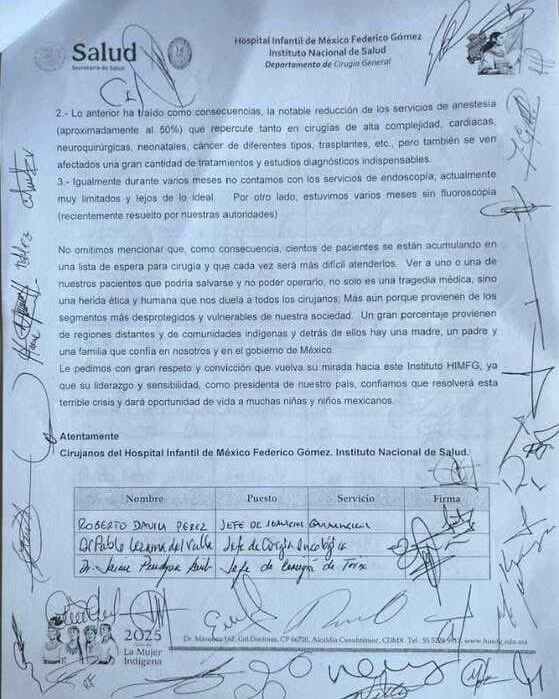 Salud
Secretaría de Salud
Hospital Infantil de México Federico Gómez
Instituto Nacional de Salud
Departamento de Cirugía General
2.- Lo anterior ha traído como consecuencias, la notable reducción de los servicios de anestesia
(aproximadamente al 50%) que repercute tanto en cirugías de alta complejidad, cardiacas,
neuroquirúrgicas, neonatales, cáncer de diferentes tipos, trasplantes, etc., pero también se ven
afectados una gran cantidad de tratamientos y estudios diagnósticos indispensables.
3.- Igualmente durante varios meses no contamos con los servicios de endoscopía; actualmente
muy limitados y lejos de lo ideal. Por otro lado, estuvimos varios meses sin fluoroscopía
(recientemente resuelto por nuestras autoridades)
No omitimos mencionar que, como consecuencia, cientos de pacientes se están acumulando en
una lista de espera para cirugía y que cada vez será más difícil atenderlos. Ver a uno a una de
nuestros pacientes que podría salvarse y no poder operarlo, no solo es una tragedia médica, sino
una herida ética y humana que nos duela a todos los cirujanos; Más aún porque provienen de los
segmentos más desprotegidos y vulnerables de nuestra sociedad. Un gran porcentaje provienen
de regiones distantes y de comunidades indígenas y detrás de ellos hay una madre, un padre y
una familia que confía en nosotros y en el gobierno de México.
Le pedimos con gran respeto y convicción que vuelva su mirada hacia este Instituto HIMFG, ya
que su liderazgo y sensibilidad, como presidenta de nuestro país, confiamos que resolverá esta
terrible crisis y dará oportunidad de vida a muchas niñas y niños mexicanos.
Atentamente
Cirujanos del Hospital Infantil de México Federico Gómez. Instituto Nacional de Salud.
Nombre Puesto Servicio Firma
ROBERTO DAVILA PEREZ JEFE DE SERVICIO
Dr Pablo Lezama del Valle Jefe de Cirugía Oncológica
Dr. Jaime Jefe de Cirugía de Tórax
2025
Año de
La Mujer
Indígena
Dr. Márquez 162, Col Doctores, CP 06720, Alcaldía Cuauhtémoc, CDMX. Tel.: 55 www.himfg.edu.mx